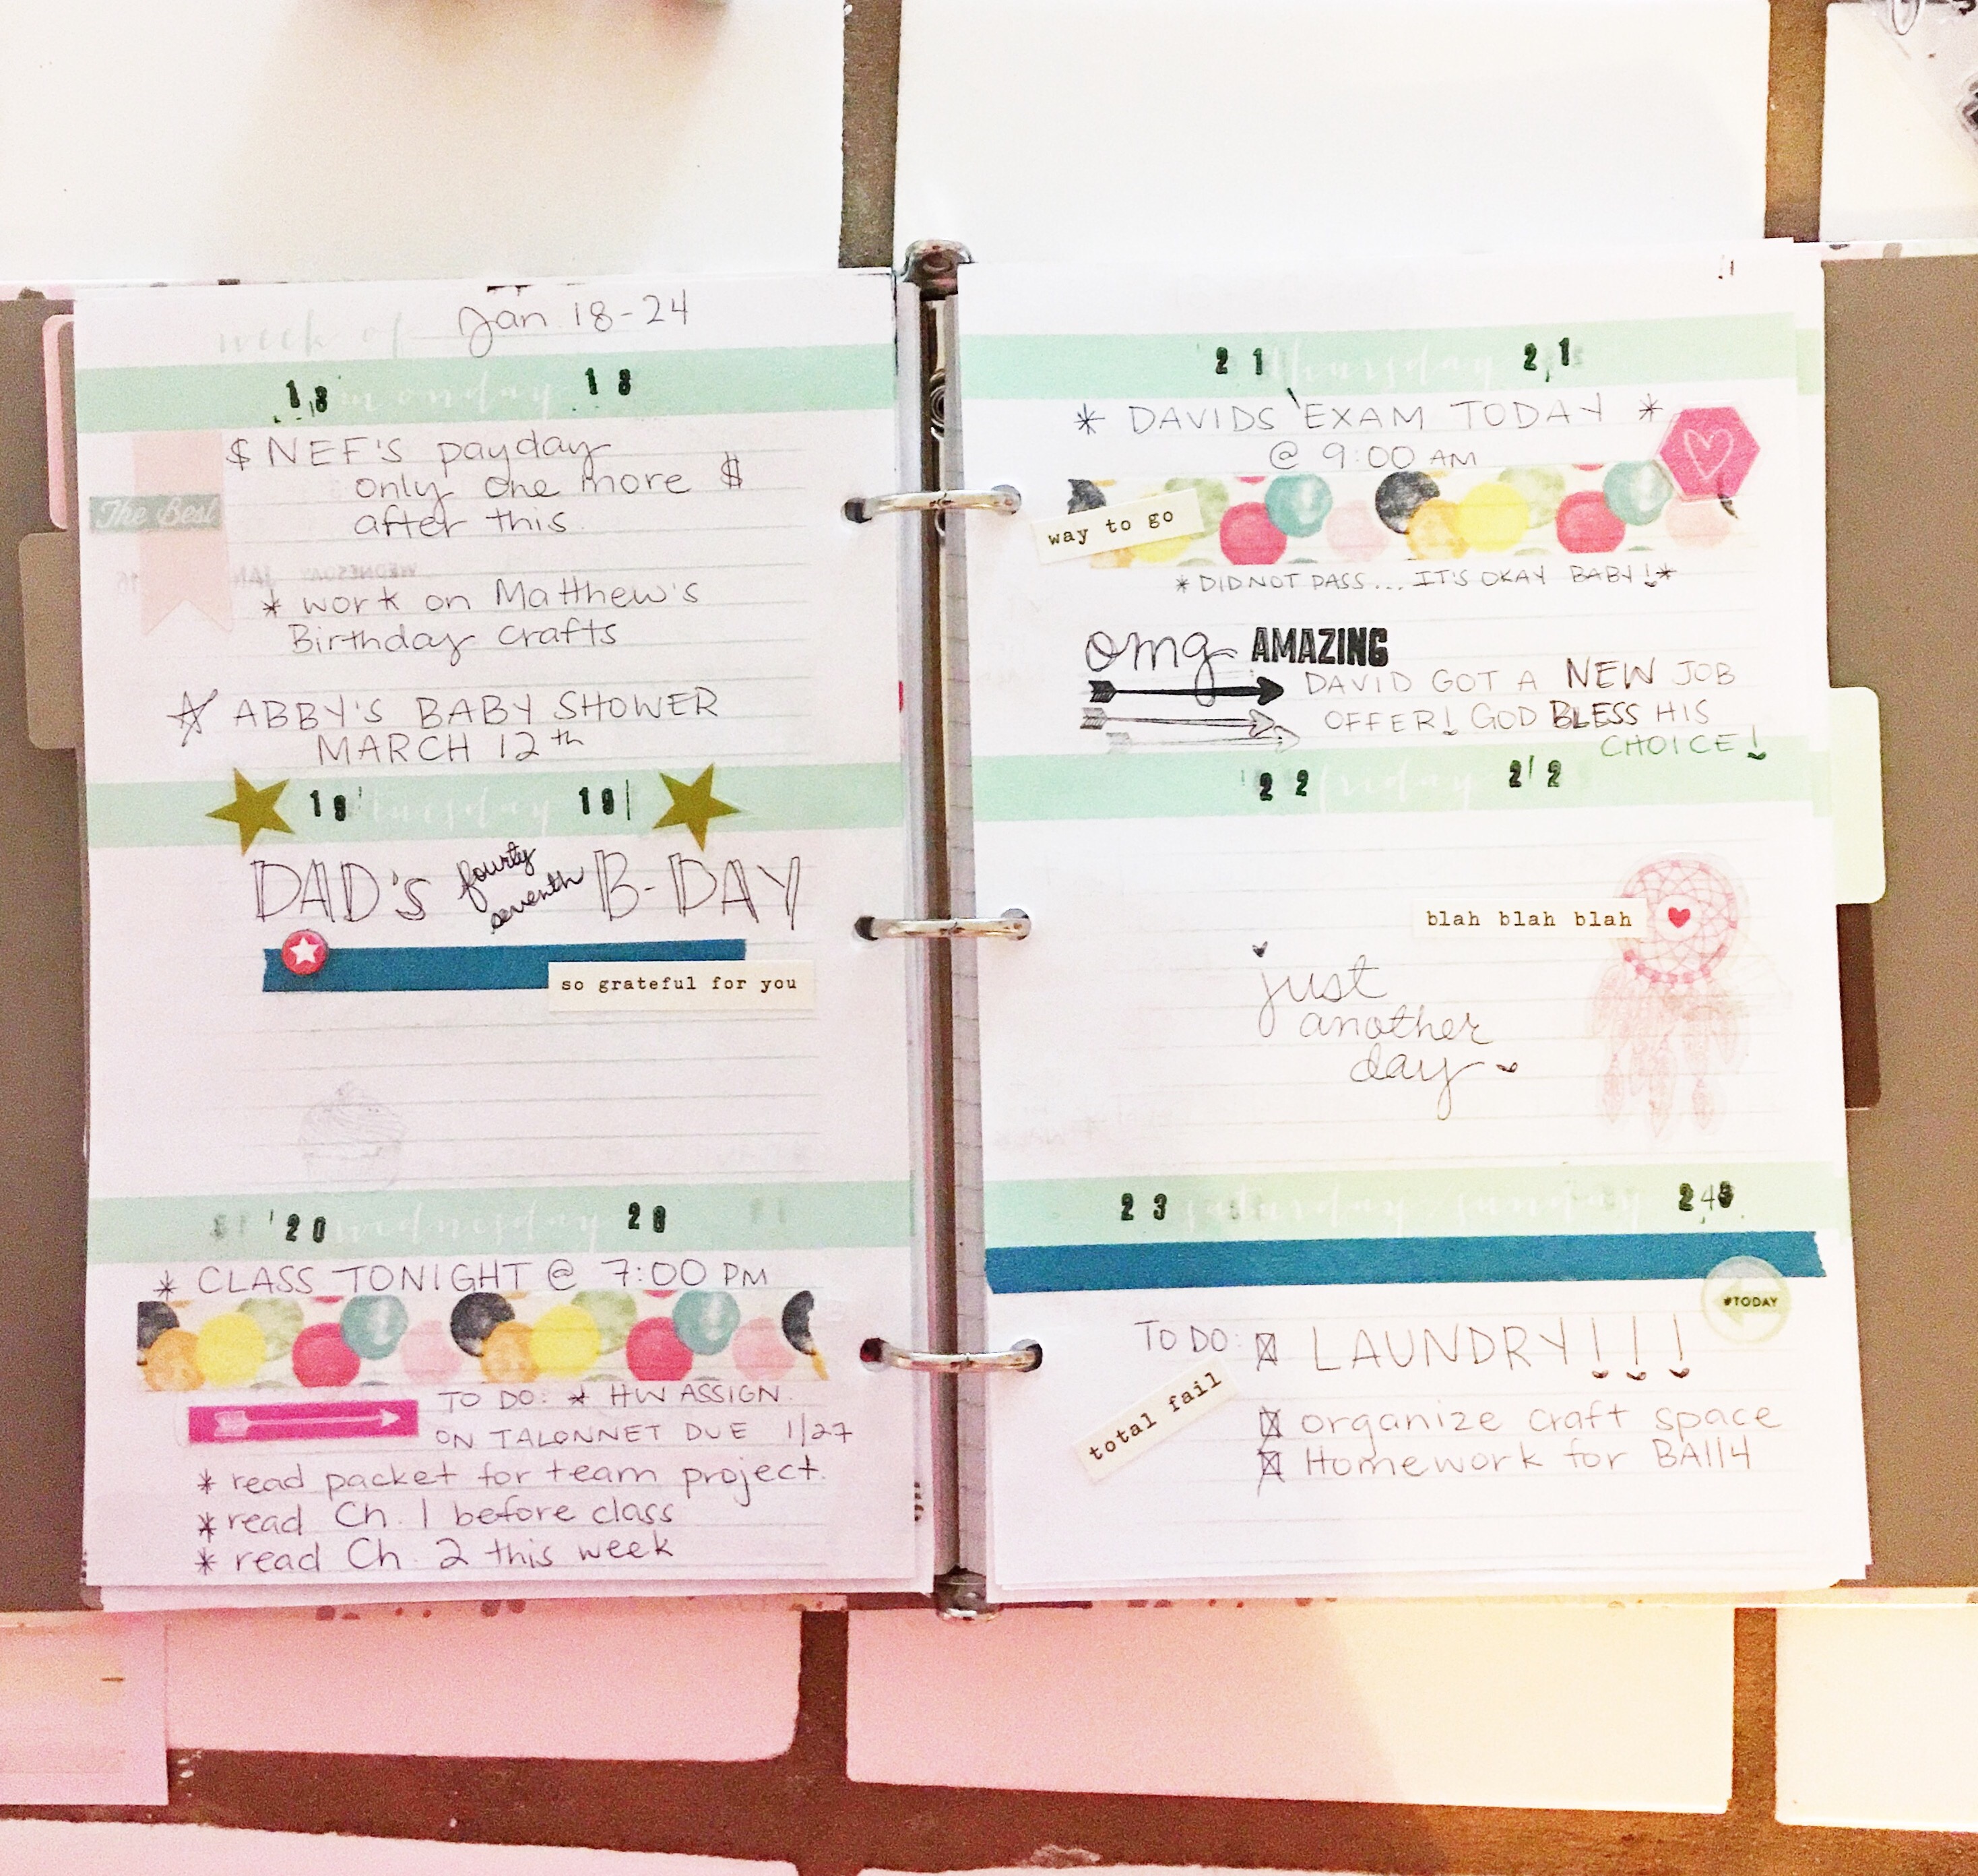 week of Jan 18-24
18 monday 18
$ NEF'S payday
only one more $
after this
The Best
* work on Matthew's
Birthday crafts
ABBY'S BABY SHOWER
MARCH 12th
19 tuesday 19
DAD'S fourty seventh B-DAY
so grateful for you
20 wednesday 20
* CLASS TONIGHT @ 7:00 PM
TO DO: * HW ASSIGN.
ON TALONNET DUE 1/27
* read packet for team project.
* read Ch. 1 before class
* read Ch. 2 this week
21 thursday 21
* DAVIDS EXAM TODAY *
@ 9:00 AM
way to go
* DID NOT PASS... IT'S OKAY BABY! *
omg AMAZING
DAVID GOT A NEW JOB
OFFER! GOD BLESS HIS
CHOICE!
22 friday 22
blah blah blah
just
another
day
23 saturday sunday 24
#TODAY
TO DO: LAUNDRY!!!
total fail
organize craft space
Homework for BA114